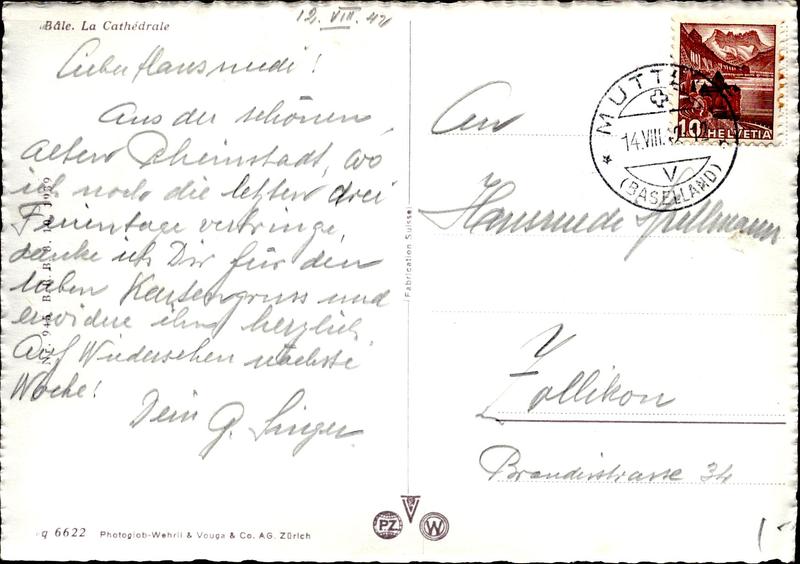 Bâle. La Cathédrale
12. VIII. 42
Lieber Hansruedi!
Aus der schönen
alten Rheinstadt, wo
ich noch die letzten drei
Ferientage verbringe,
danke ich Dir für den
lieben Kartengruss und
erwidre ihn herzlich.
Auf Wiedersehen nächste
Woche!
Dein G. Singer
q 6622 Photoglob-Wehrli & Vouga & Co. AG. Zürich
Fabrication Suisse
PZ
W
MUTTENZ
14.VIII.
V
(BASELLAND)
10 HELVETIA
An
Hansruedi Spillmann
Zollikon
Brandisstrasse 34